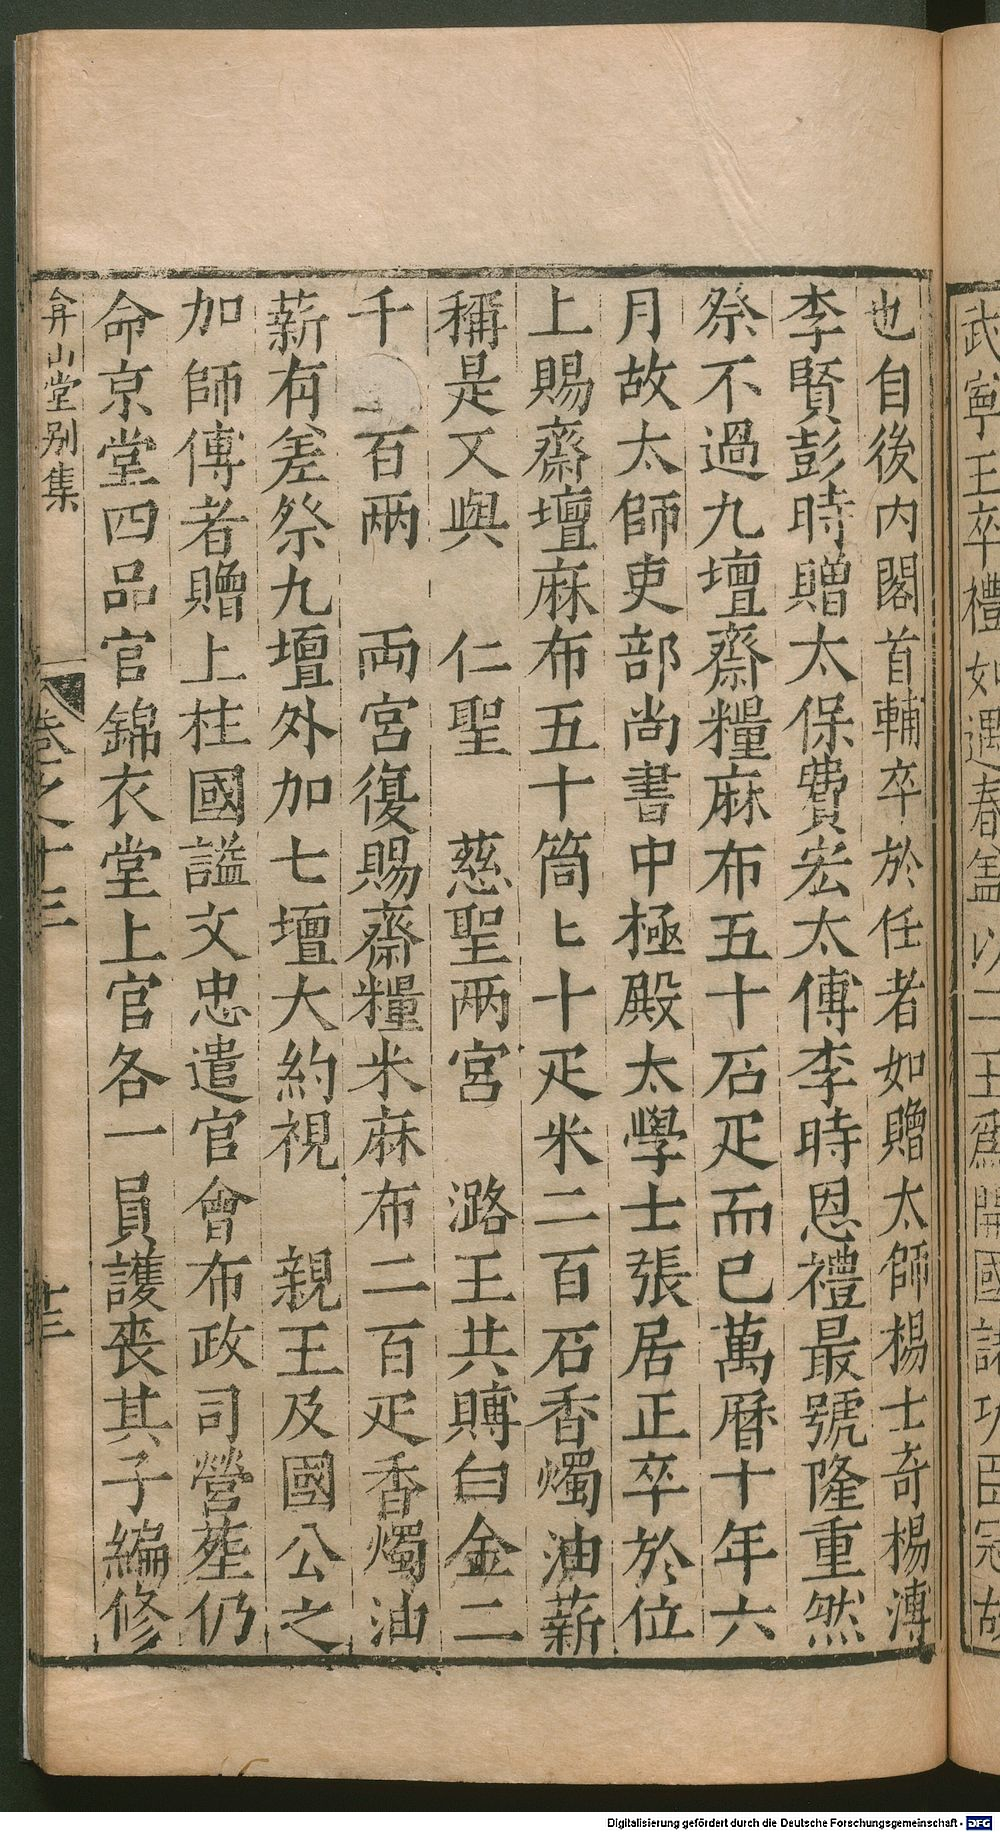 武寧王卒禮如遇春盖以二王為開國
也自後内閣首輔卒於任者如贈太師楊士奇楊溥
李賢彭時贈太保費宏太傅李時恩禮最號隆重然
祭不過九壇齋糧麻布五十石疋而已萬曆十年六
月故太師吏部尚書中極殿太學士張居正卒於位
上賜齋壇麻布五十筒七十疋米二百石香燭油薪
稱是又與 仁聖 慈聖兩宮 潞王共賻白金二
千一百兩 兩宮復賜齋糧米麻布二百疋香燭油
薪有差祭九壇外加七壇大約視 親王及國公之
加師傅者贈上柱國謚文忠遣官會布政司營塟仍
命京堂四品官錦衣堂上官各一員護喪其子編修
弇山堂别集 卷之十三 十三
Digitalisierung gefördert durch die Deutsche Forschungsgemeinschaft - DFG